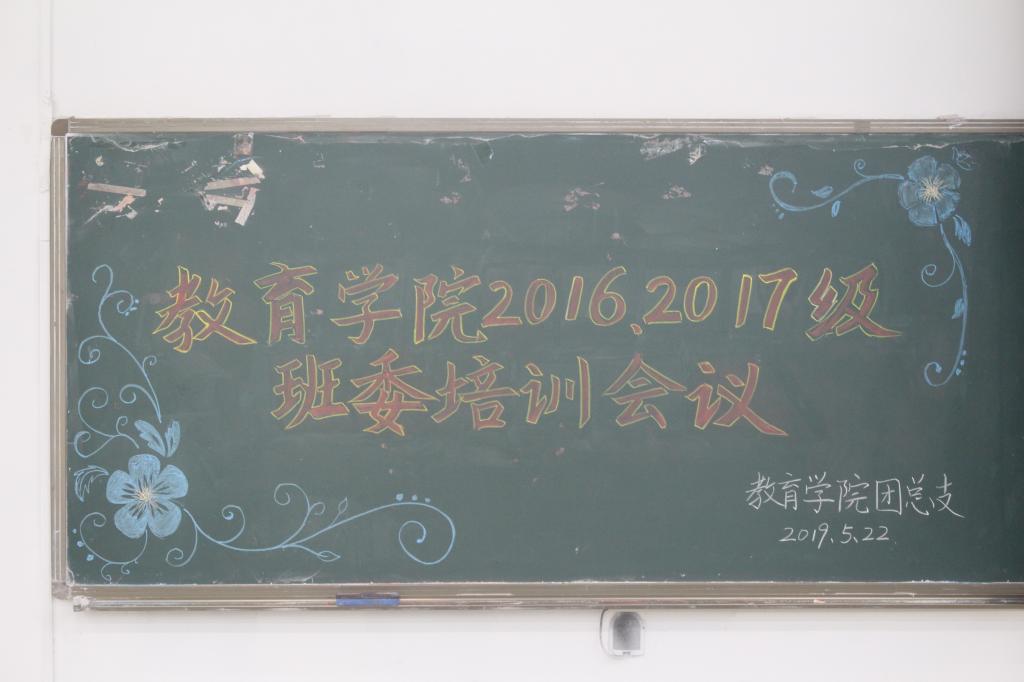 教育学院2016、2017级
班委培训会议
教育学院团总支
2019.5.22